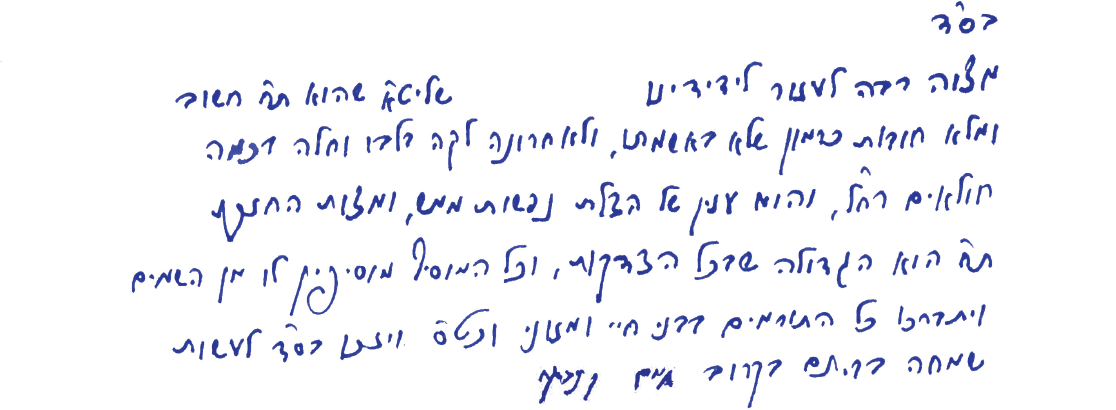 בס"ד
מצוה רבה לעזור לידידינו שליט"א שהוא ת"ח חשוב
ומלא חובות כרמון שלא באשמתו, ולאחרונה לקה בלבו וחלה בכמה
חולאים רח"ל, והוא ענין של הצלת נפשות ממש, ומצות החזקת
ת"ח הוא הגדולה שבכל הצדקות, וכל המוסיף מוסיפין לו מן השמים
ויתברכו כל התורמים בבני חיי ומזוני וכט"ס ויזכו בס"ד לעשות
שמחה בביתם בקרוב אמן